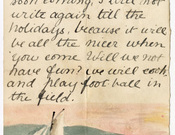 soon coming, I will not
write again till the
holidays, because it will
be all the nicer when
you come. Well we not
have fun? we will cook
and play foot ball in
the field.